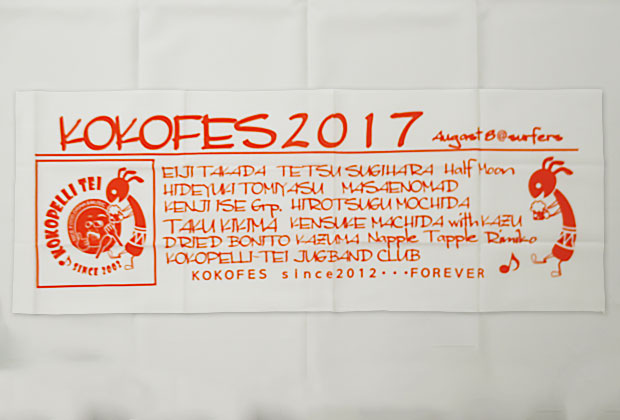 KOKOFES 2017 August 8@surfers
EIJI TAKADA TETSU SUGIHARA Half Moon
HIDEYUKI TOMIYASU MASAENOMAD
KENJI ISE Grp. HIROTSUGU MOCHIDA
TAKU KIKIMA KENSUKE MACHIDA with KAZU
DRIED BONITO KAZUMA Napple Tapple Rimiko
KOKOPELLI-TEI JUGBAND CLUB
KOKOFES since2012···FOREVER
KOKOPELLI TEI
SINCE 2002